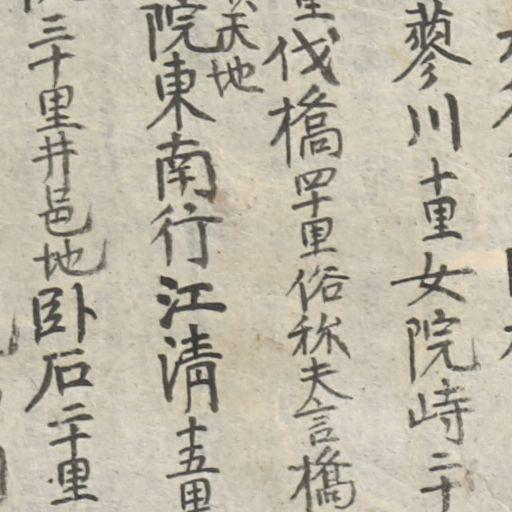 蓼川十里女院峙二十
里伐橋四十里俗称夫言橋
天地
院東南行江清十五里
三十里井邑地卧石二十里